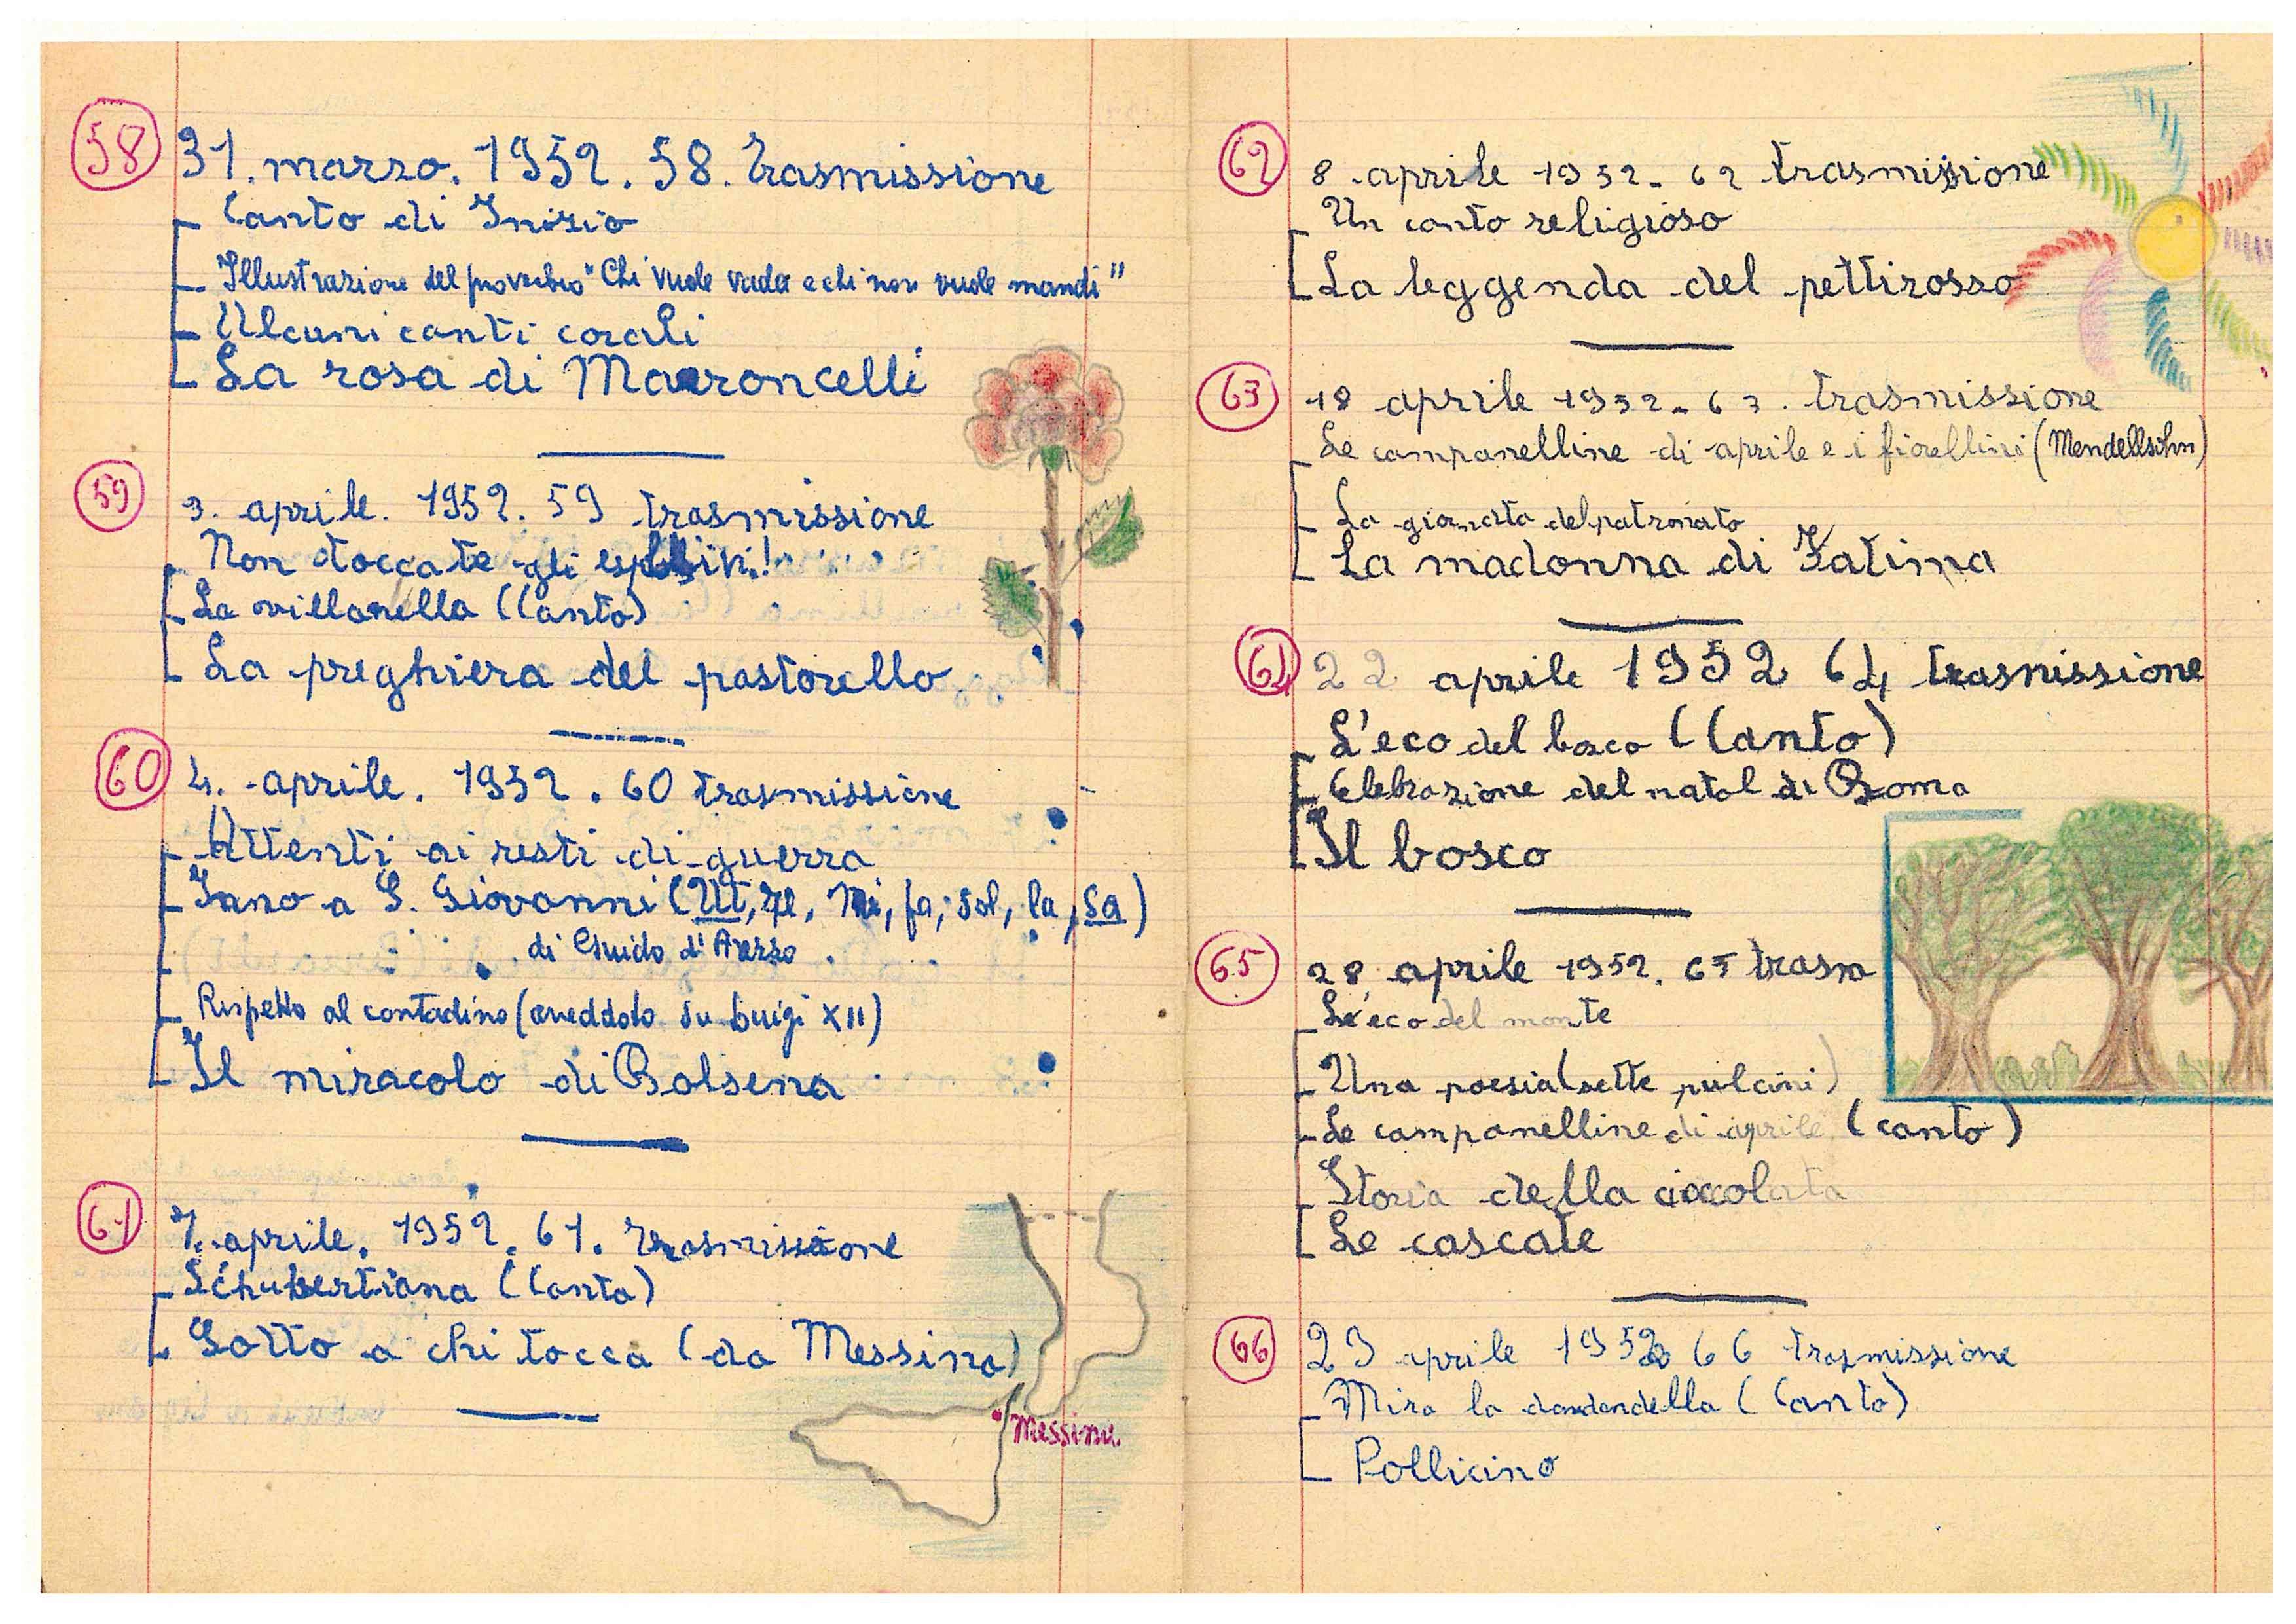 58
31. marzo. 1952. 58. Trasmissione
Canto di Inizio
Illustrazione del proverbio "Chi vuole vada e chi non vuole mandi"
Alcuni canti corali
La rosa di Maroncelli
59
3. aprile. 1952. 59 trasmissione
Non toccate gli esplosivi!
La villanella (Canto)
La preghiera del pastorello
60
4. aprile. 1952. 60 trasmissione
Attenti ai resti di guerra
Inno a S. Giovanni (Ut, re, Mi, fa, sol, la, Sa)
di Guido d'Arezzo
Rispetto al contadino (aneddoto su Luigi XII)
Il miracolo di Bolsena
61
7. aprile. 1952. 61. Trasmissione
Schubertiana (Canto)
Sotto a chi tocca (da Messina)
Messina.
62
8 aprile 1952. 62 trasmissione
Un canto religioso
La leggenda del pettirosso
63
18 aprile 1952. 63. trasmissione
Le campanelline di aprile e i fiorellini (Mendellsohn)
La giornata del patronato
La madonna di Fatima
64
22 aprile 1952 64 trasmissione
L'eco del bosco (Canto)
Celebrazione del natal di Roma
Il bosco
65
28 aprile 1952. 65 trasm
L'eco del monte
Una poesia (sette pulcini)
Le campanelline di aprile (canto)
Storia della cioccolata
Le cascate
66
29 aprile 1952 66 trasmissione
Mira la dondondella (Canto)
Pollicino